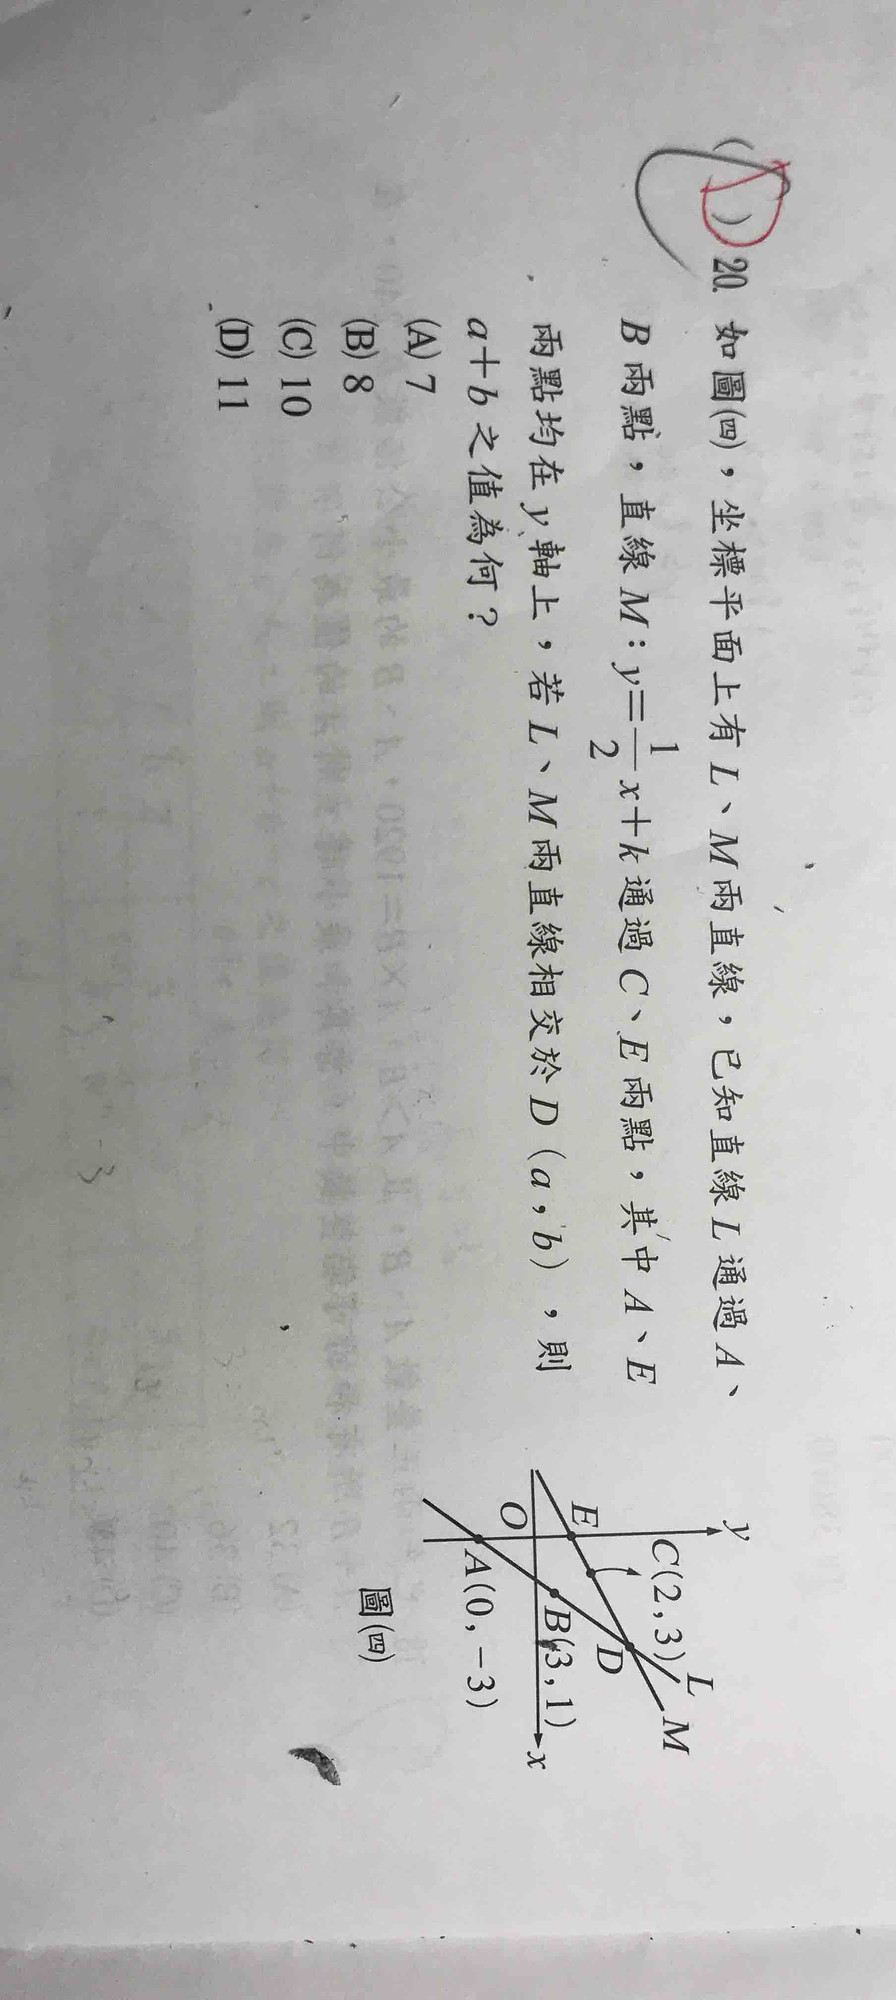 (D) 20. 如圖(四)，坐標平面上有 L、M 兩直線，已知直線 L 通過 A、
B 兩點，直線 M：y=1/2x+k 通過 C、E 兩點，其中 A、E
兩點均在 y 軸上，若 L、M 兩直線相交於 D（a，b），則
a+b 之值為何？
(A) 7
(B) 8
(C) 10
(D) 11
y
C(2,3)
L
M
E
D
B(3,1)
O
x
A(0,-3)
圖(四)